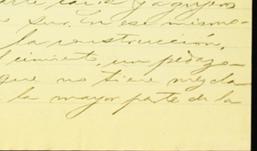 sur. En ese mismo
la construcción,
cimiento, un pedazo
que no tiene mezcla
la mayor parte de la